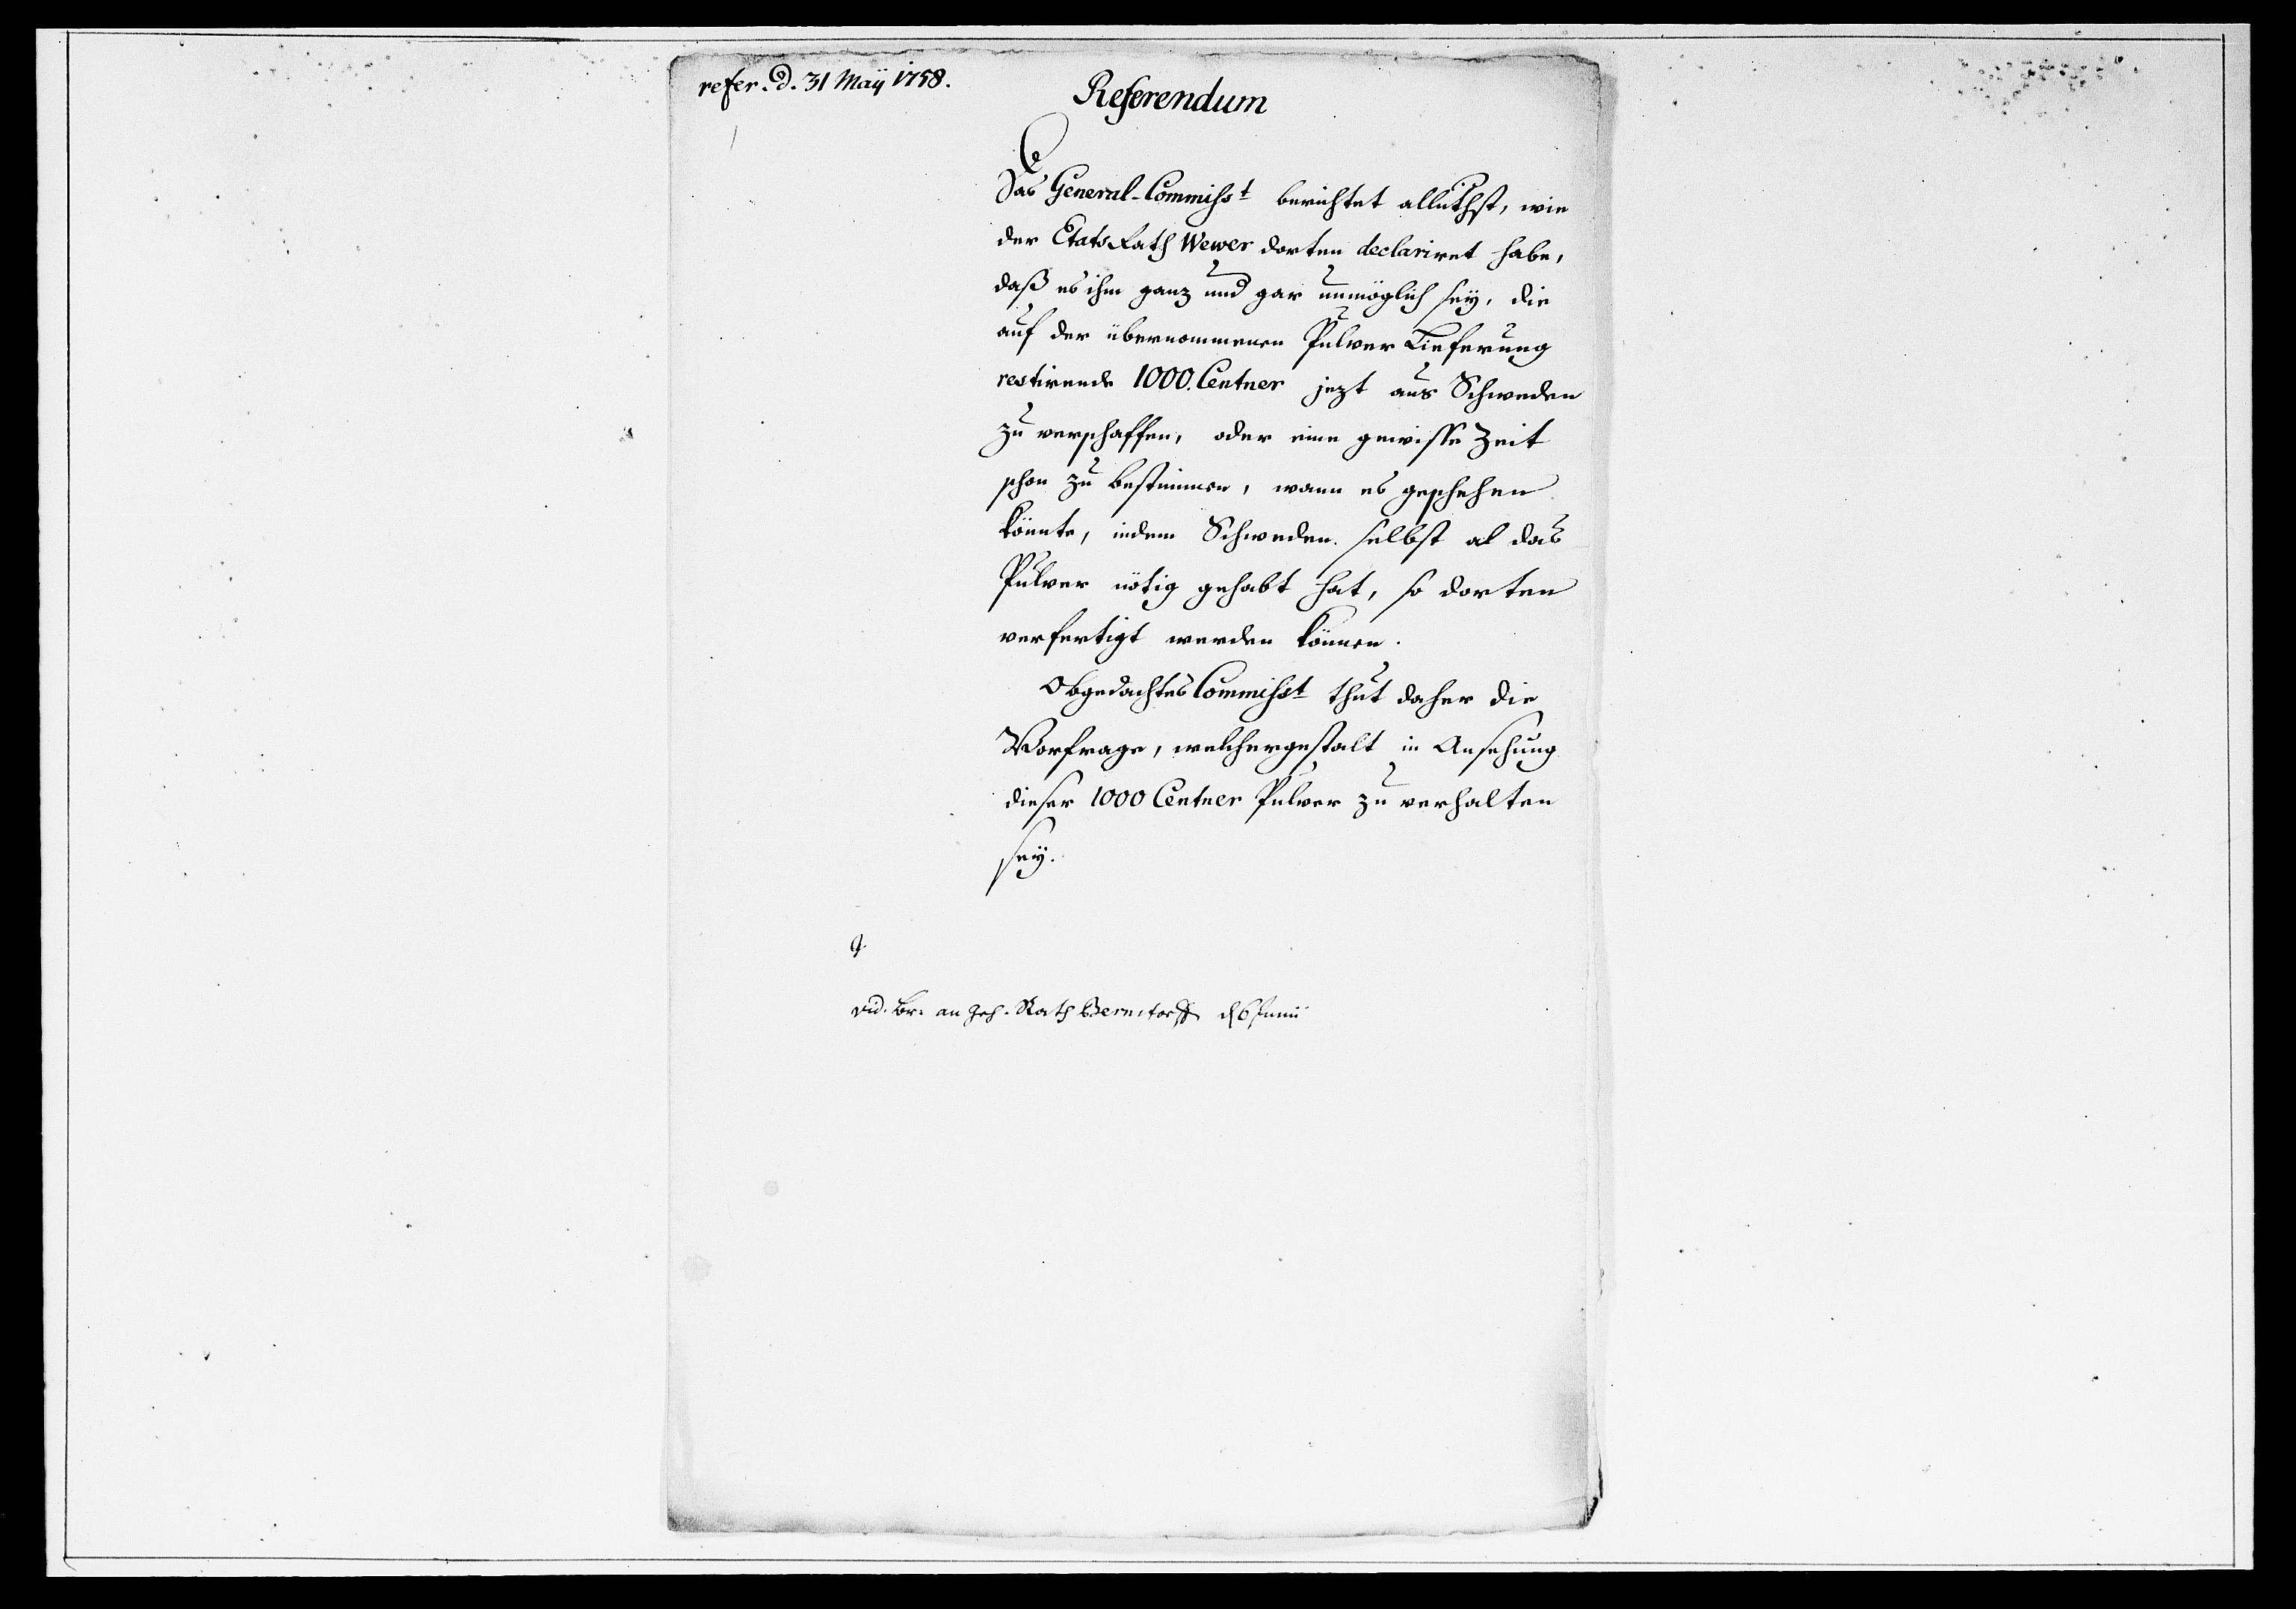 refer. d. 31 Maÿ 1758.
Referendum
Das General-Commisst berichtet alluthst, wie
der Etats Rath Wewer dorten declariret habe,
daß es ihm ganz und gar unmöglich seÿ, die
auf der übernommenen Pulver Lieferung
restirende 1000. Centner jezt aus Schweden
zu verschaffen, oder eine gewisse Zeit
schon zu bestimmen, wann es geschehen
könnte, indem Schweden selbst al das
Pulver nötig gehabt hat, so dorten
verfertigt werden können.
Obgedachtes Commisst thut daher die
Vorfrage, welchergestalt in Ansehung
dieser 1000 Centner Pulver zu verhalten
seÿ.
vid. Br. an Geh. Rath Bernstorff d 6 Junii